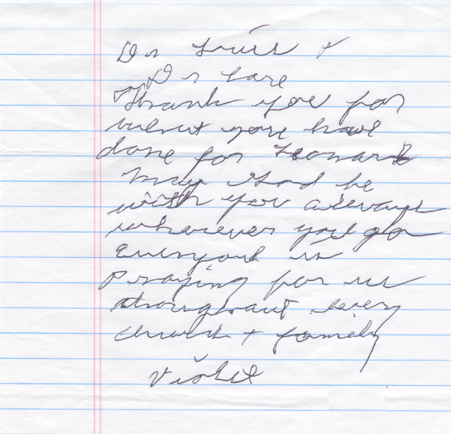 Dr +
Dr
Thank you for
what you have
done for Leonard
may God be
with you always
wherever you go
Everyone is
Praying for us
throughout every
church + family
Violet